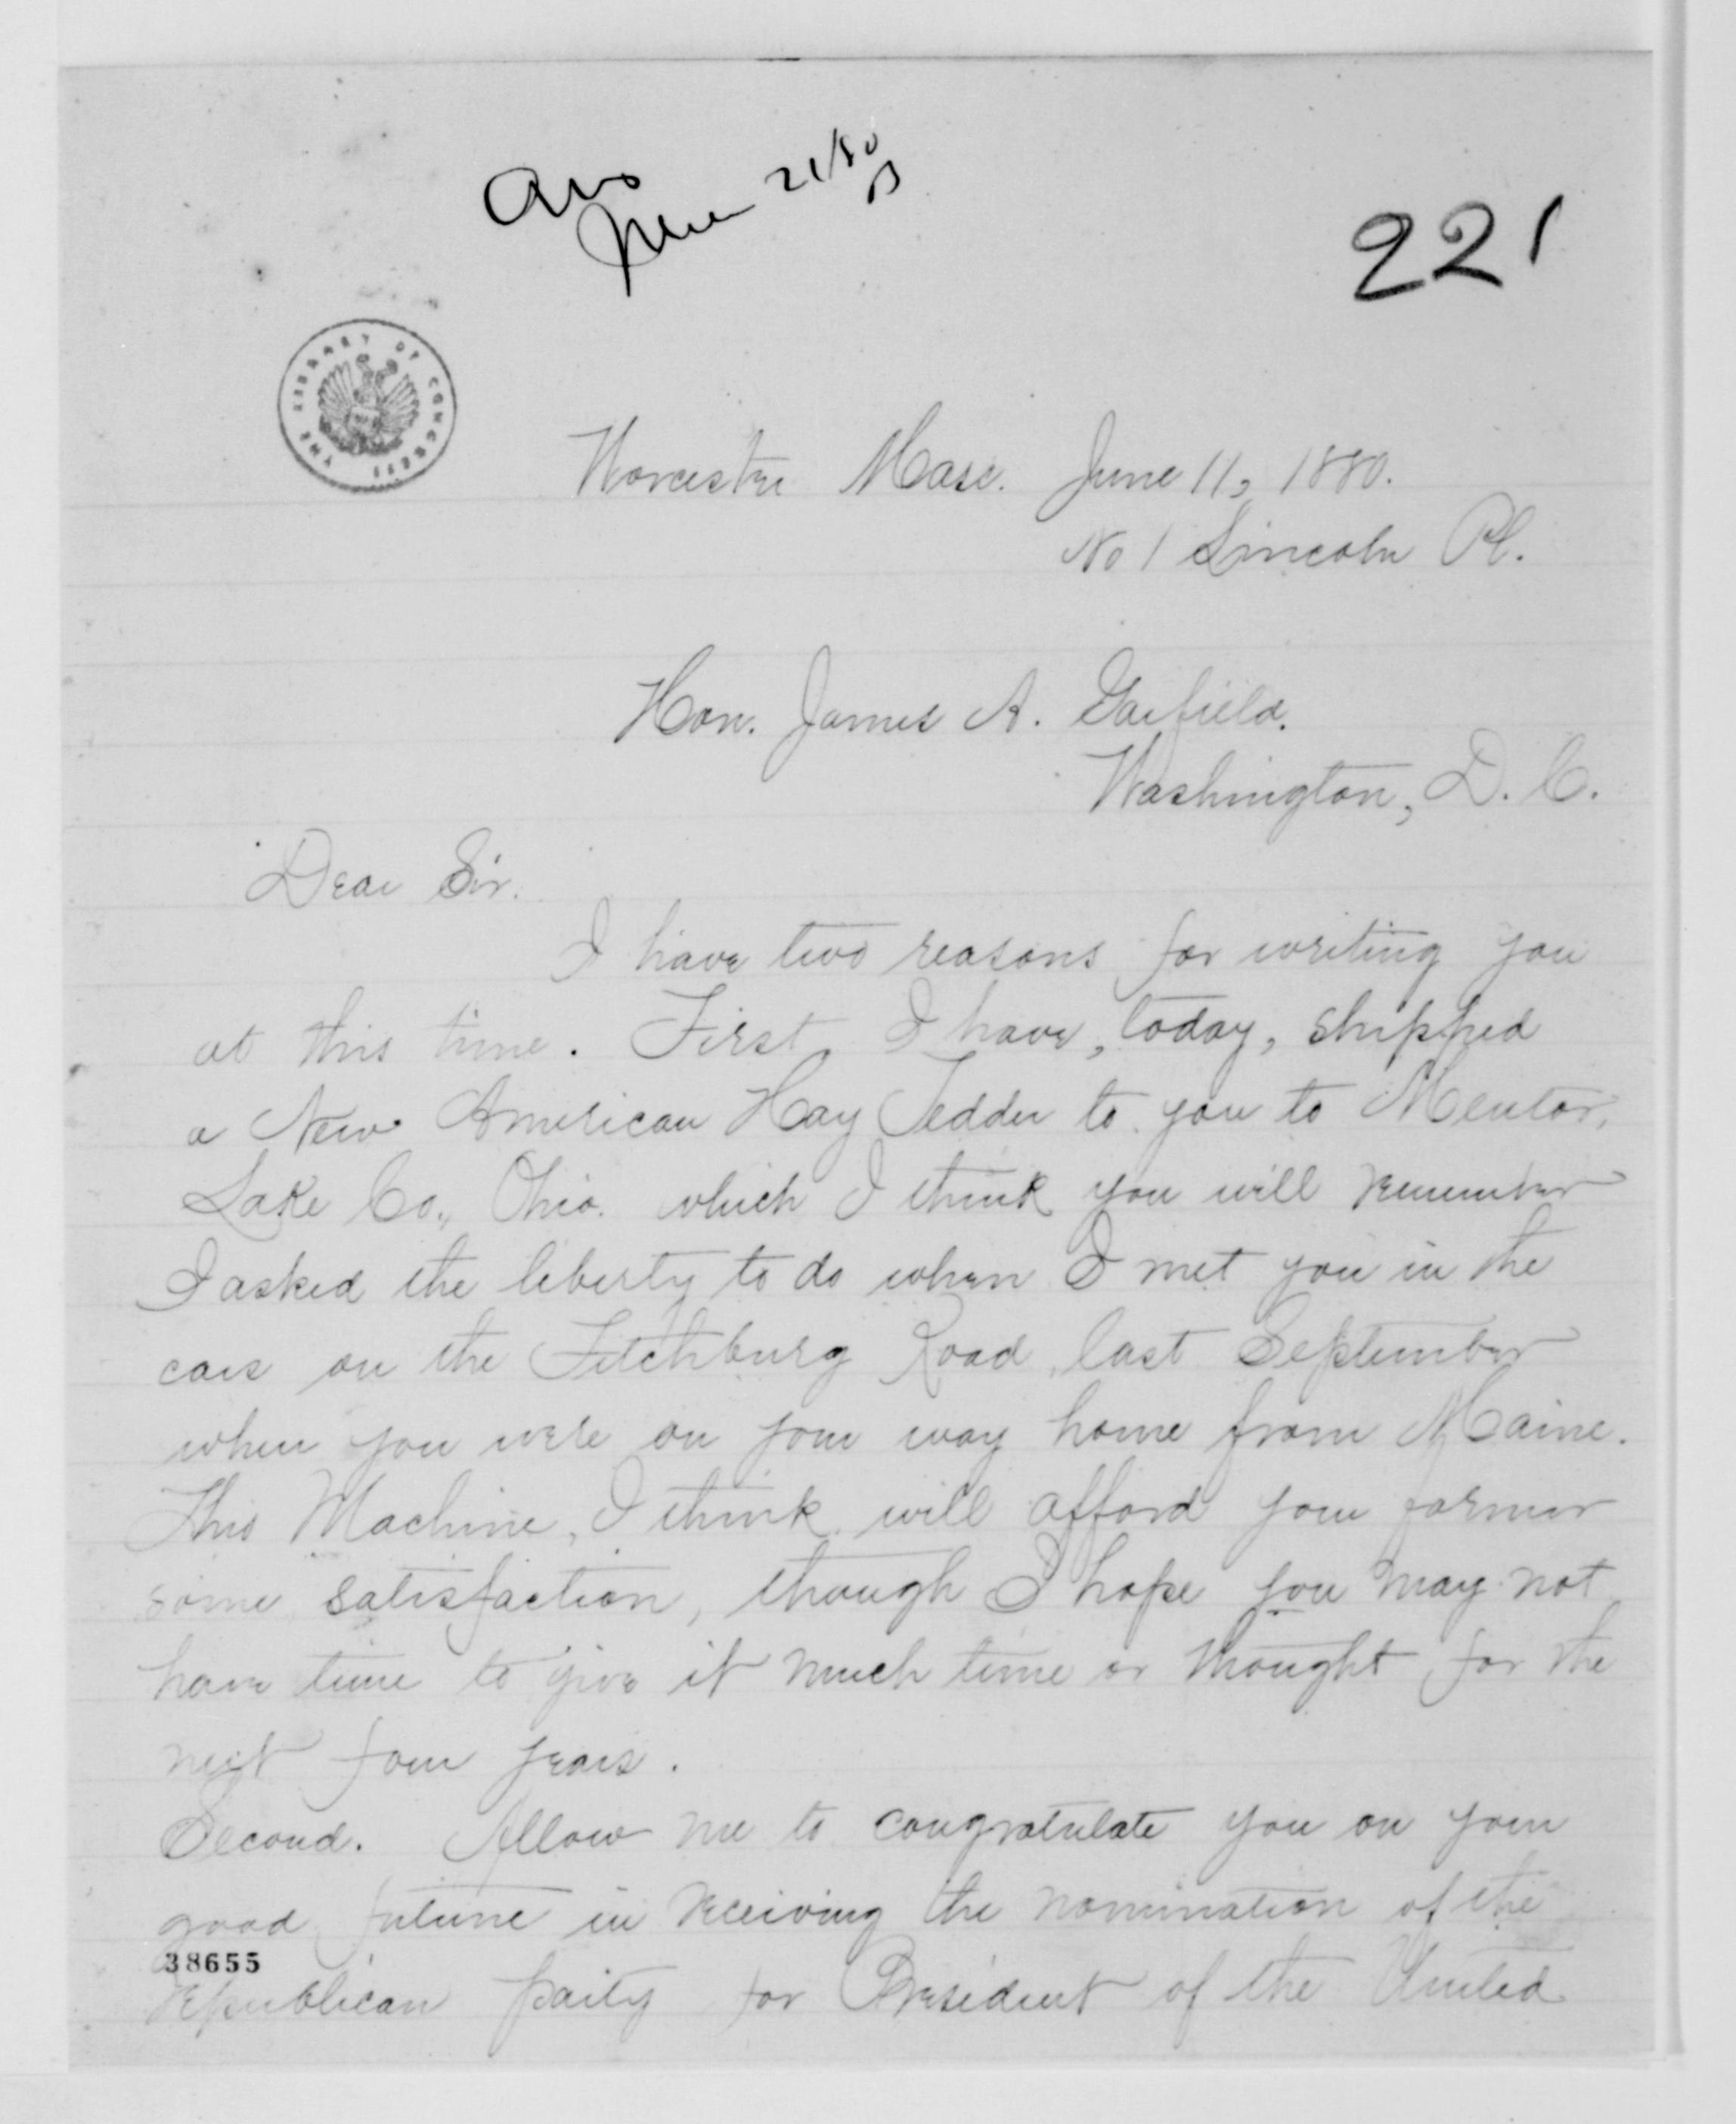 Ans
June 21/80
B
221
THE LIBRARY OF CONGRESS
Worcester Mass. June 11, 1880.
No 1 Lincoln Pl.
Hon. James A. Garfield.
Washington, D. C.
Dear Sir.
I have two reasons for writing you
at this time. First, I have, today, shipped
a New American Hay Tedder to you to Mentor,
Lake Co., Ohio. which I think you will remember
I asked the liberty to do when I met you in the
cars on the Fitchburg Road last September
when you were on your way home from Maine.
This Machine, I think, will afford your farmer
some satisfaction, though I hope you may not
have time to give it much time or thought for the
next four years.
Second. Allow me to congratulate you on your
good futune in receiving the nomination of the
38655
republican party for President of the United